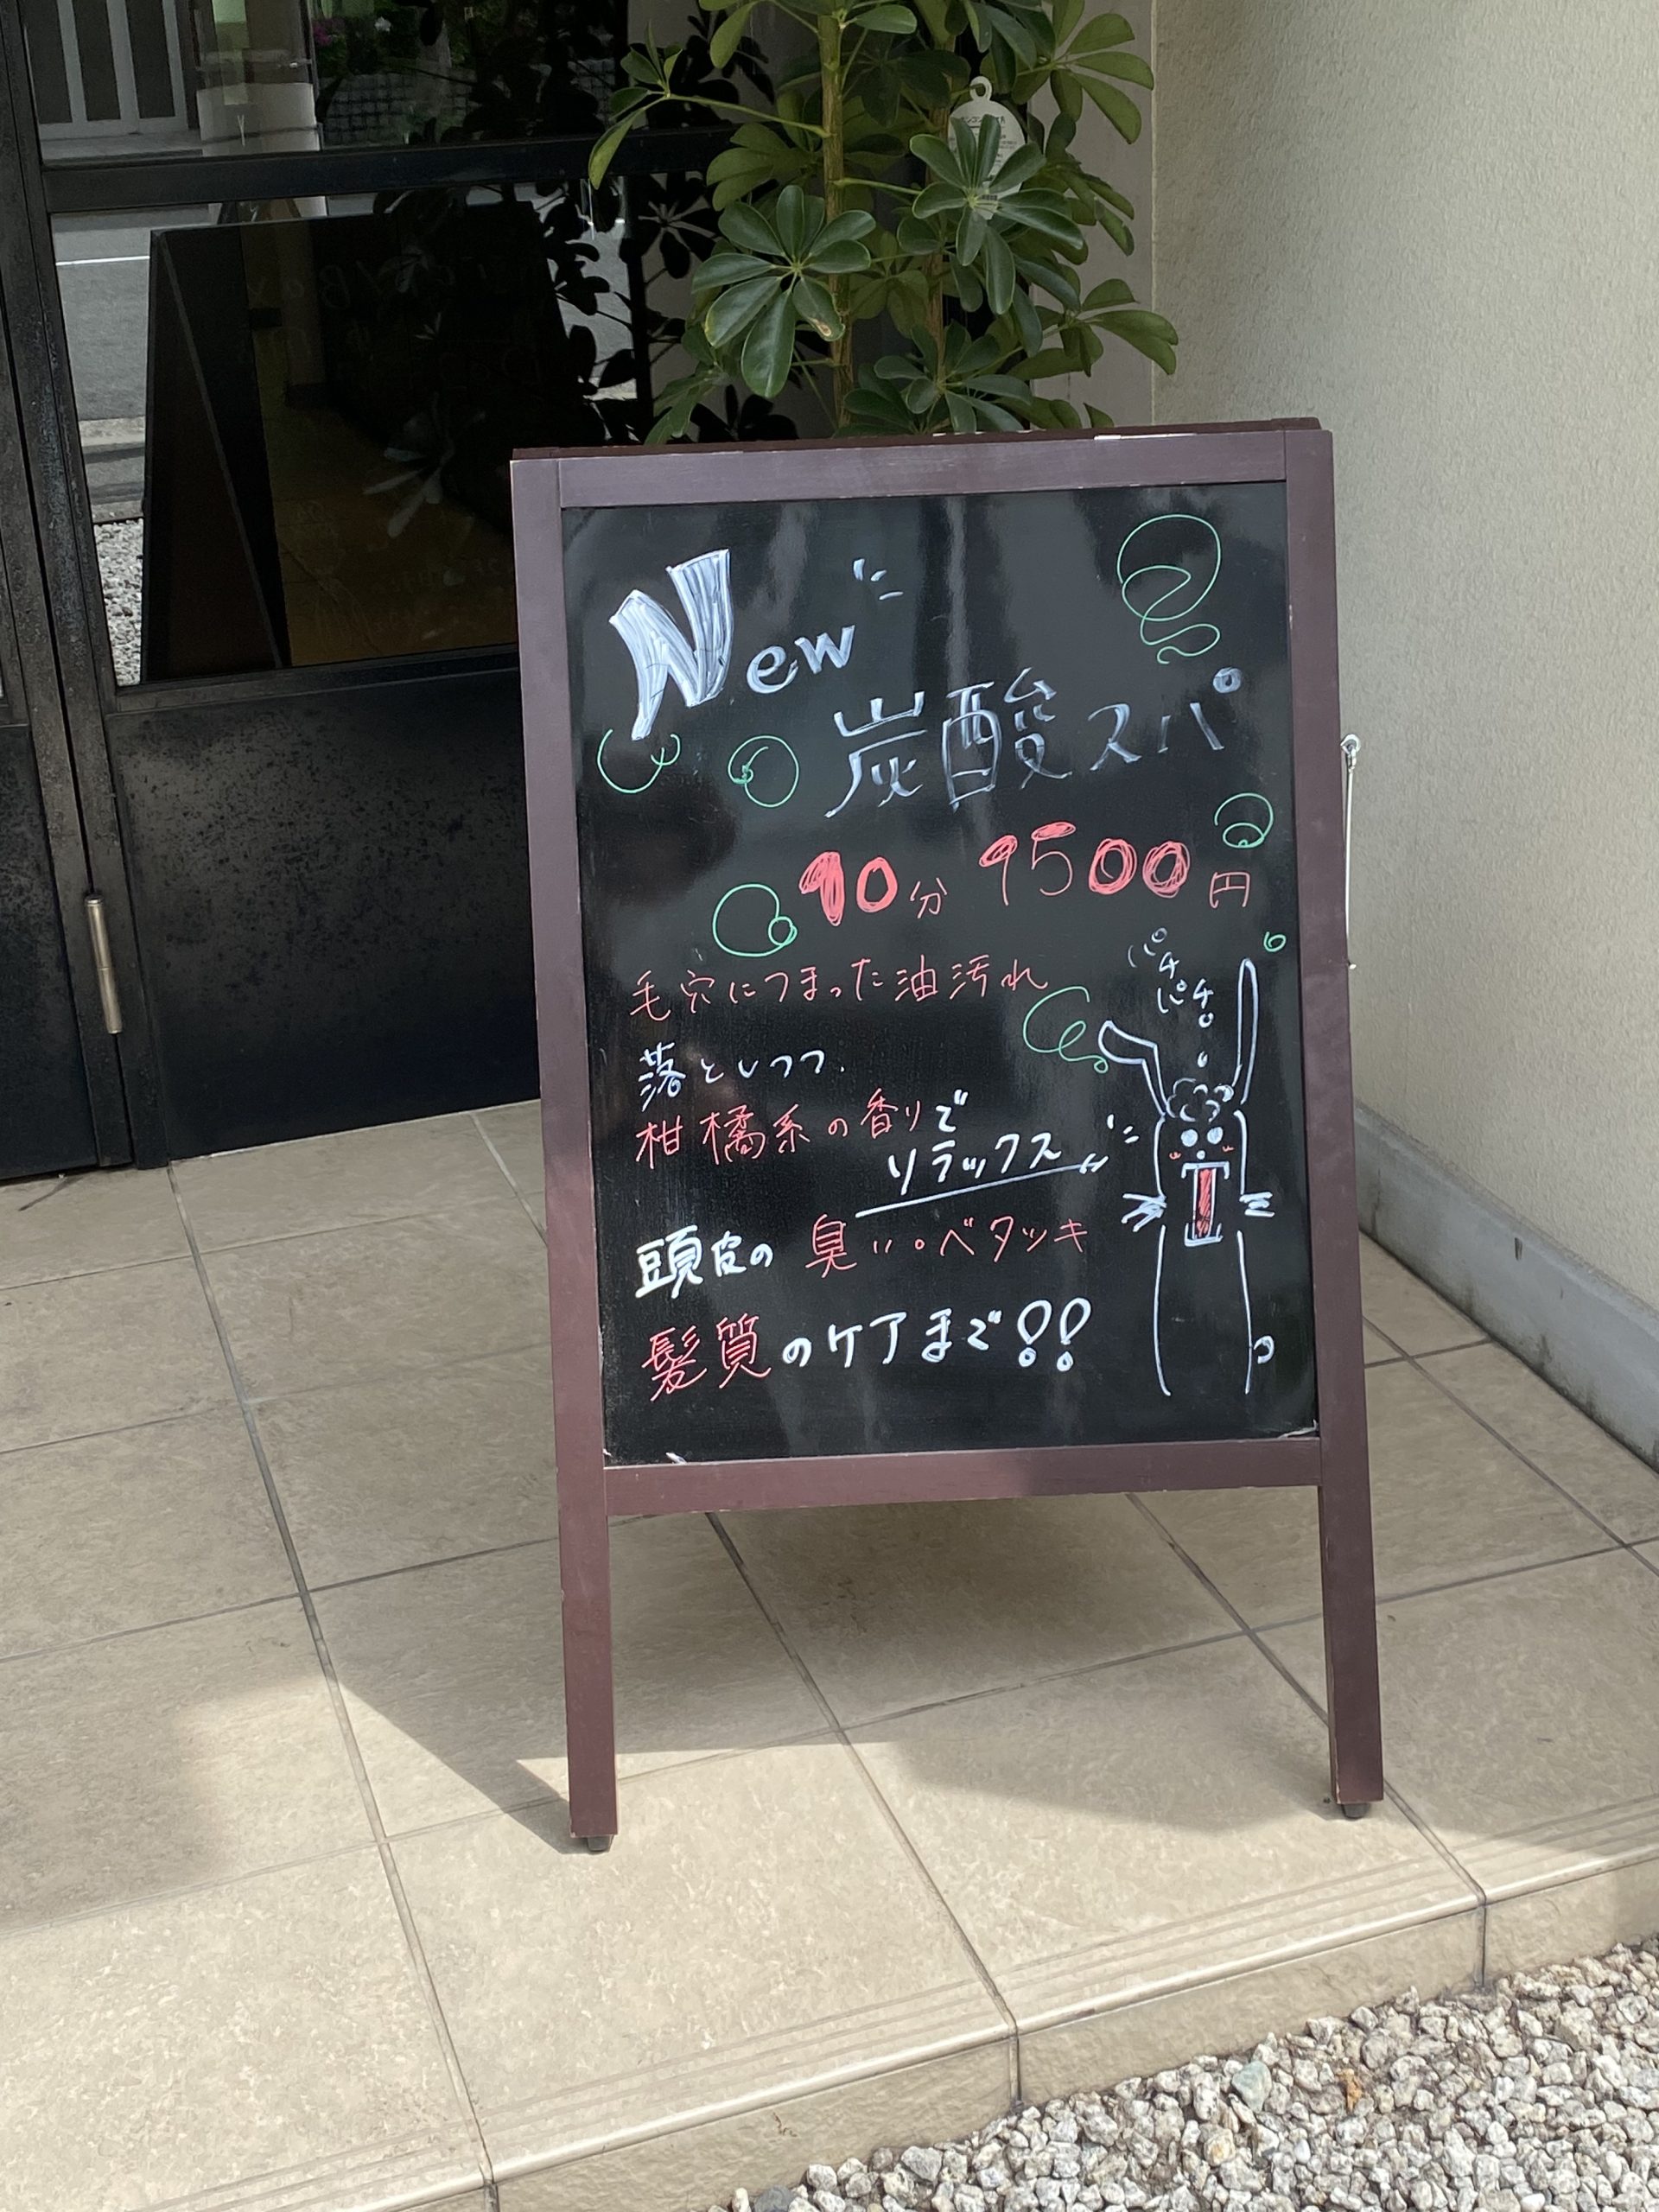 New
炭酸スパ
90分 9500円
毛穴につまった油汚れ
落としつつ.
柑橘系の香りで
リラックス
頭皮の臭い・ベタツキ
髪質のケアまで!!
パチ
パチ